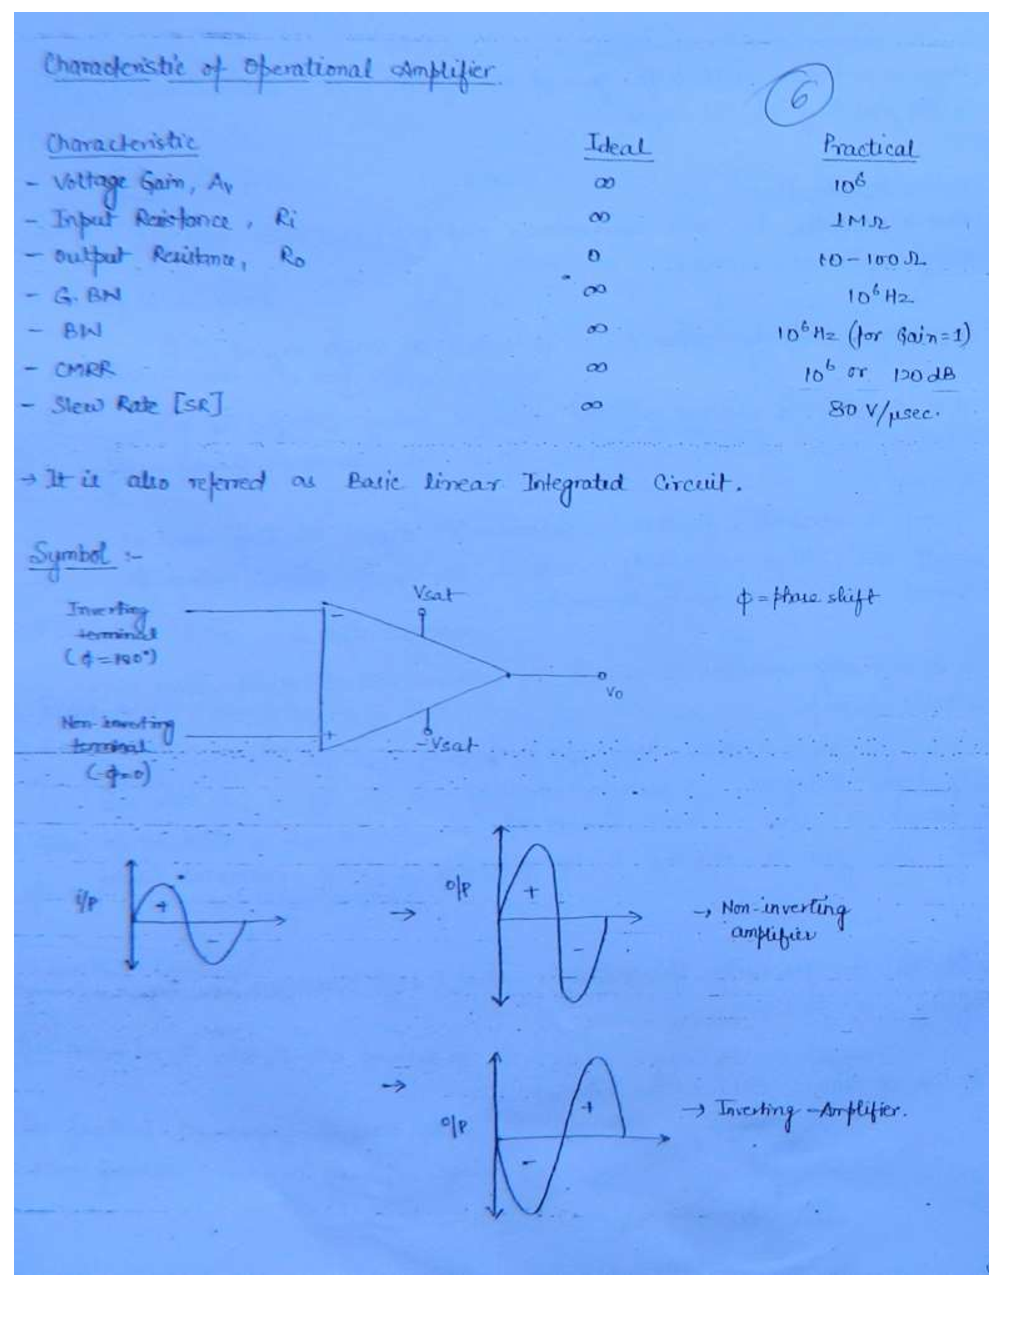 Characteristic of Operational Amplifier.
6
Characteristic Ideal Practical
- Voltage Gain, Av ∞ 10⁶
- Input Resistance, Ri ∞ 1MΩ
- output Resistance, Ro 0 10-100Ω
- G. BW ∞ 10⁶ Hz
- BW ∞ 10⁶ Hz (for Gain=1)
- CMRR ∞ 10⁶ or 120 dB
- Slew Rate [SR] ∞ 80 V/μsec.
→ It is also referred as Basic linear Integrated Circuit.
Symbol :-
Vsat
ϕ = phase shift
Inverting
terminal
(ϕ=180°)
-
Vo
Non-inverting
terminal
(ϕ=0)
+
-Vsat
i/p + -
→ o/p + - → Non-inverting
amplifier
→ o/p - + → Inverting-Amplifier.